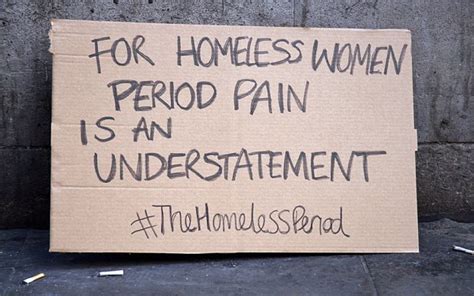 FOR HOMELESS WOMEN
PERIOD PAIN
IS AN
UNDERSTATEMENT
#TheHomelessPeriod